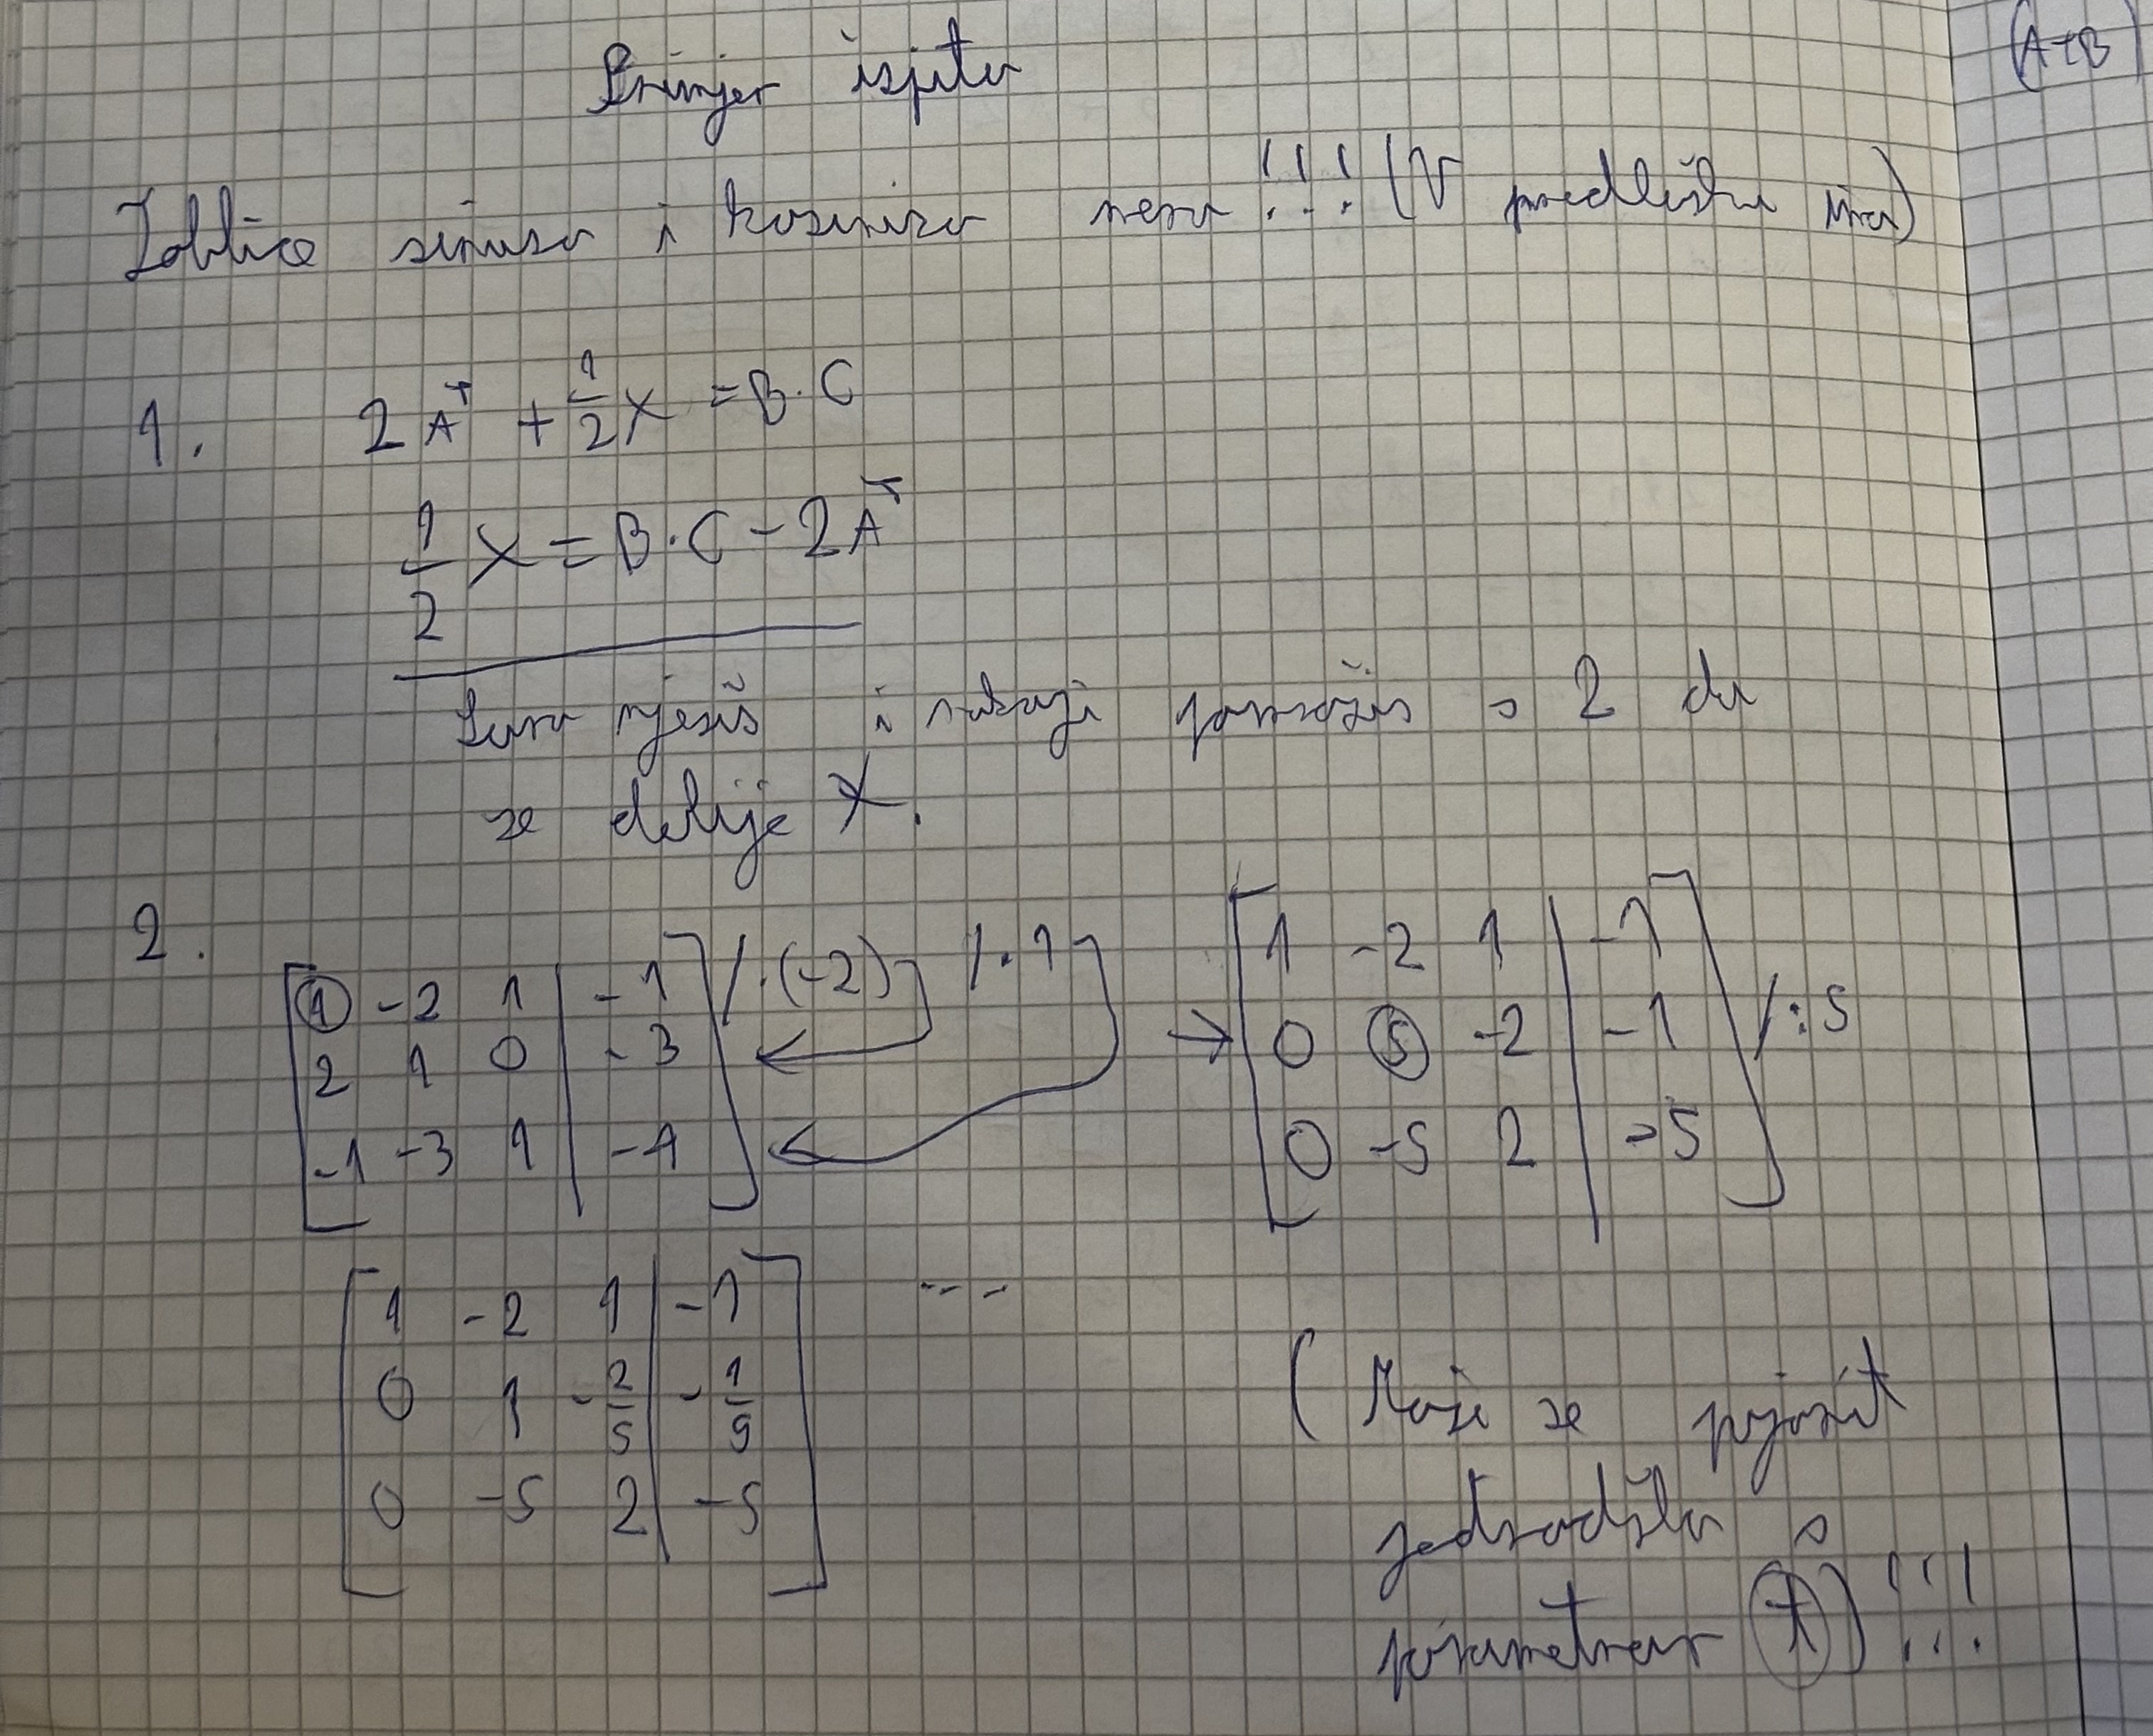 Primjer ispita
(A+B)
Tablice sinusa i kosinusa nema!!! (V predlošku ima)
1. 2A^T + 1/2 X = B·C
1/2 X = B·C - 2A^T
Samo rješiš i na kraji pomnožiš s 2 da
se dobije X.
2.
[1 -2 1 | -1] /·(-2) /·1 → [1 -2 1 | -1]
[2 1 0 | -3] [0 5 -2 | -1] /:5
[-1 -3 1 | -4] [0 -5 2 | -5]
[1 -2 1 | -1] ---
[0 1 -2/5 | -1/5]
[0 -5 2 | -5]
(Može se pojavit
jednadžba s
parametrom t)!!!